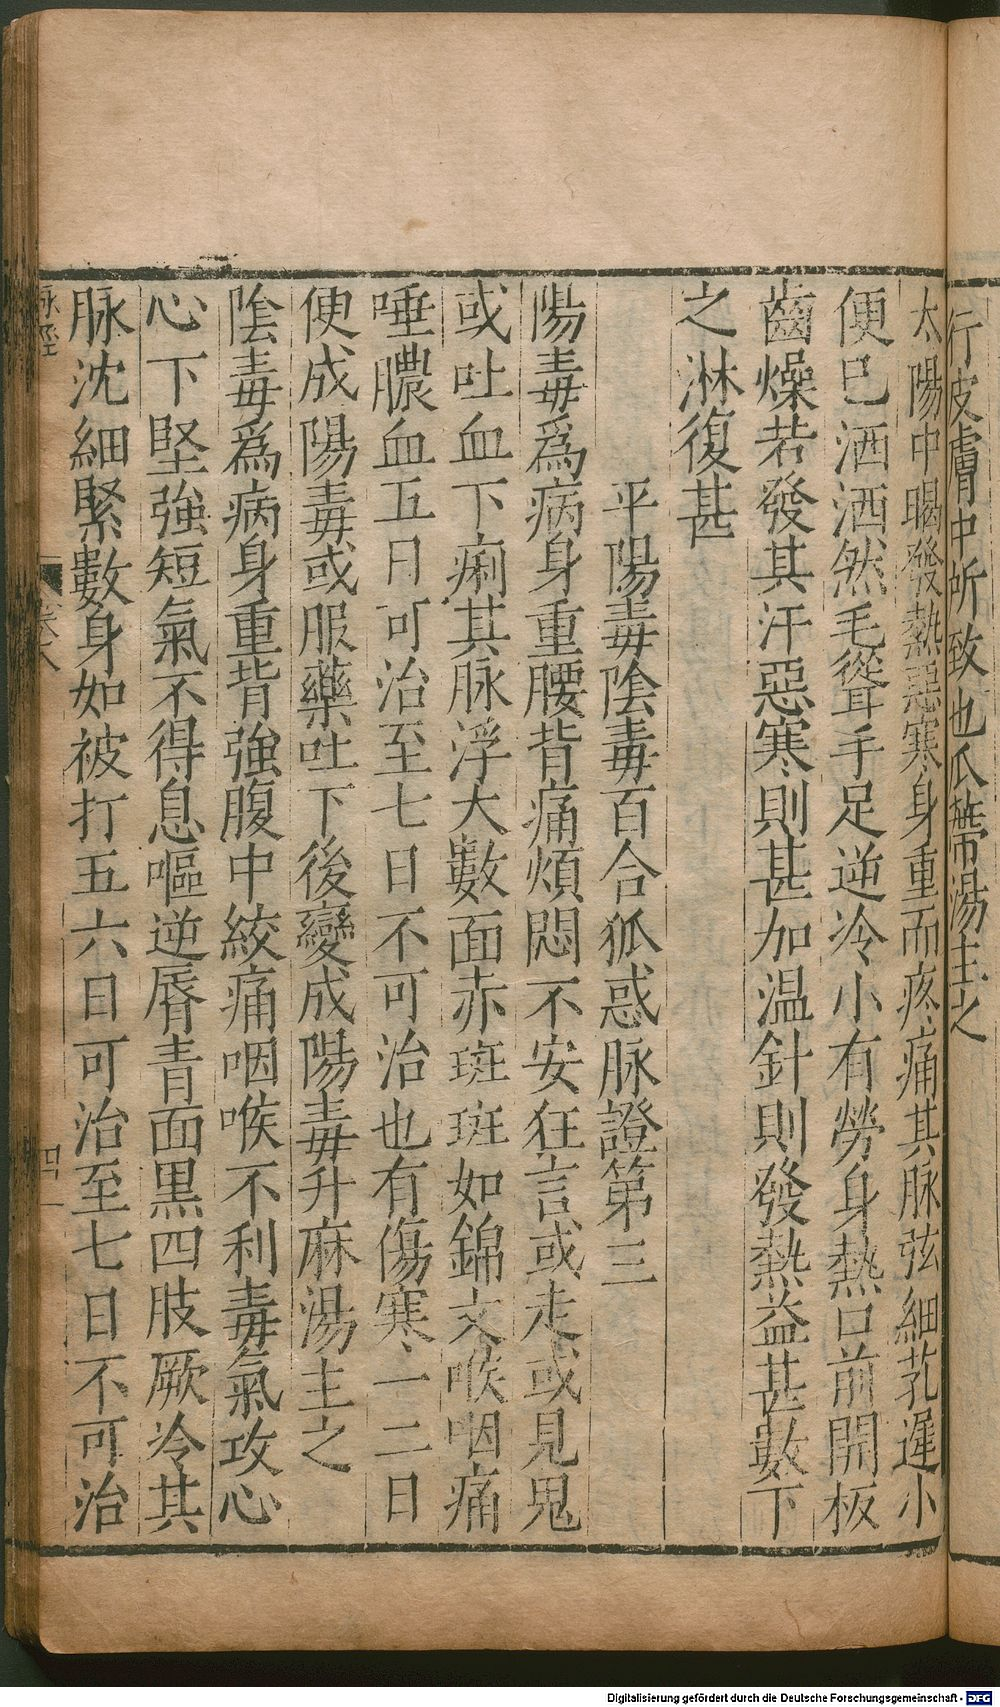 行皮膚中所致也瓜蒂湯主之
太陽中暍發熱惡寒身重而疼痛其脉弦細芤遲小
便已洒洒然毛聳手足逆冷小有勞身熱口前開板
齒燥若發其汗惡寒則甚加温針則發熱益甚數下
之淋復甚
平陽毒陰毒百合狐惑脉證第三
陽毒爲病身重腰背痛煩悶不安狂言或走或見鬼
或吐血下痢其脉浮大數面赤斑斑如錦文喉咽痛
唾膿血五日可治至七日不可治也有傷寒一二日
便成陽毒或服藥吐下後變成陽毒升麻湯主之
陰毒爲病身重背強腹中絞痛咽喉不利毒氣攻心
心下堅強短氣不得息嘔逆唇青面黒四肢厥冷其
脉沈細緊數身如被打五六日可治至七日不可治
脉經
卷八
四
Digitalisierung gefördert durch die Deutsche Forschungsgemeinschaft - DFG